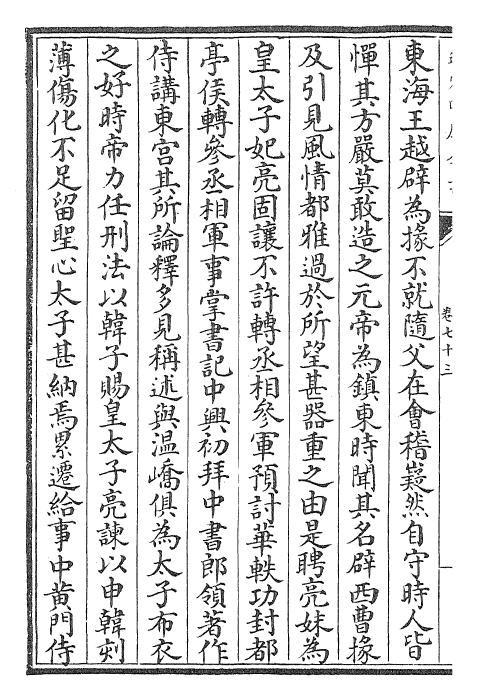 東海王越辟為掾不就隨父在會稽嶷然自守時人皆
憚其方嚴莫敢造之元帝為鎮東時聞其名辟西曹掾
及引見風情都雅過於所望甚器重之由是聘亮妹為
皇太子妃亮固讓不許轉丞相參軍預討華軼功封都
亭侯轉參丞相軍事掌書記中興初拜中書郎領著作
侍講東宫其所論釋多見稱述與温嶠俱為太子布衣
之好時帝力任刑法以韓子賜皇太子亮諫以申韓刻
薄傷化不足留聖心太子甚納焉累遷給事中黄門侍
卷七十三